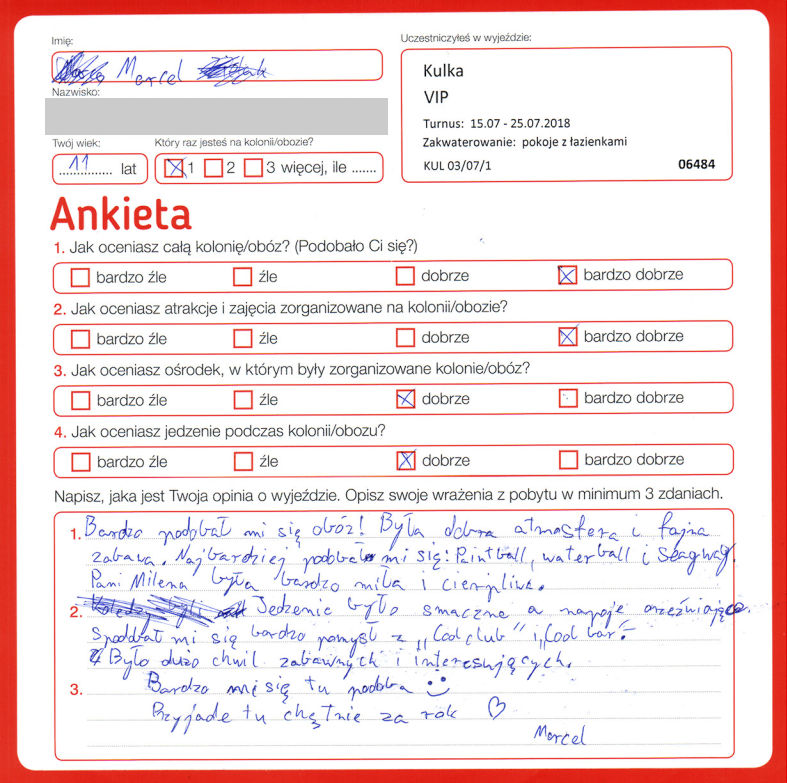 Imię:
Marcel
Nazwisko:
Twój wiek:
11 lat
Który raz jesteś na kolonii/obozie?
1 2 3 więcej, ile .......
Uczestniczyłeś w wyjeździe:
Kulka
VIP
Turnus: 15.07 - 25.07.2018
Zakwaterowanie: pokoje z łazienkami
KUL 03/07/1 06484
Ankieta
1. Jak oceniasz całą kolonię/obóz? (Podobało Ci się?)
bardzo źle źle dobrze bardzo dobrze
2. Jak oceniasz atrakcje i zajęcia zorganizowane na kolonii/obozie?
bardzo źle źle dobrze bardzo dobrze
3. Jak oceniasz ośrodek, w którym były zorganizowane kolonie/obóz?
bardzo źle źle dobrze bardzo dobrze
4. Jak oceniasz jedzenie podczas kolonii/obozu?
bardzo źle źle dobrze bardzo dobrze
Napisz, jaka jest Twoja opinia o wyjeździe. Opisz swoje wrażenia z pobytu w minimum 3 zdaniach.
1. Bardzo podobał mi się obóz! Była dobra atmosfera i fajna
zabawa. Najbardziej podobał mi się: Paintball, waterball i Seagway.
Pani Milena była bardzo miła i cierpliwa.
2. Jedzenie było smaczne a napoje orzeźwiające.
Spodobał mi się bardzo pomysł z ,,Cool club" i ,,Cool bar".
Było dużo chwil zabawnych i interesujących.
3. Bardzo mi się tu podoba
Przyjadę tu chętnie za rok
Marcel